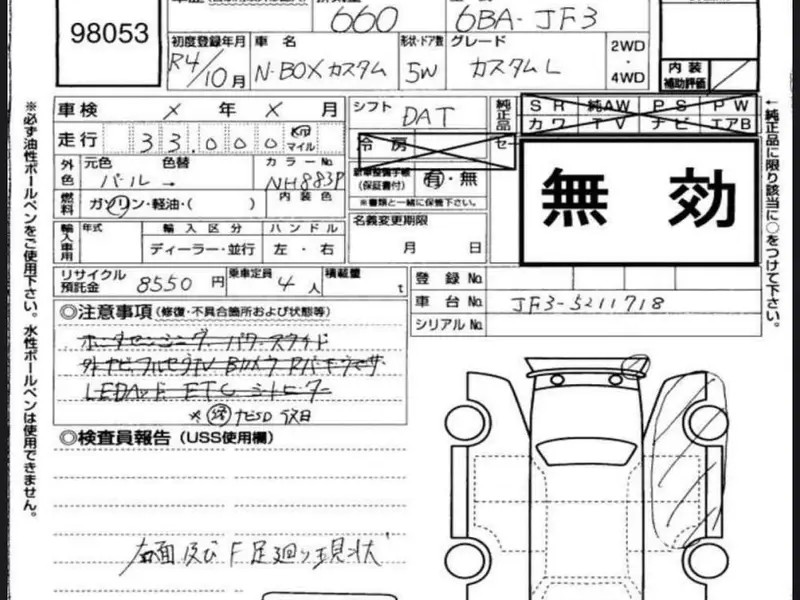 98053
660
6BA-JF3
初度登録年月
R4/10月
車名
N-BOXカスタム
形状・ドア数
5W
グレード
カスタムL
2WD
・
4WD
内装
補助評価
車検 × 年 × 月
シフト
DAT
純正品
SR 純AW PS PW
カワ TV ナビ エアB
走行 33,000 km マイル
冷房
(保証書付)
有・無
※書類と一緒に保管下さい。
無効
外色
元色 色替
パール →
カラーNo.
NH883P
燃料
ガソリン・軽油・( )
内装色
名義変更期限
月 日
輸入車用
年式
輸入区分
ディーラー・並行
ハンドル
左・右
リサイクル預託金 8550 円
乗車定員 4 人
積載量 t
登録No.
車台No. JF3-5211718
シリアルNo.
◎注意事項(修復・不具合箇所および状態等)
ホンダセンシング パワースライド
LEDヘッド ETC シートヒーター
ナビSD 後日
◎検査員報告(USS使用欄)
右面及びF足廻り現状
※必ず油性ボールペンをご使用下さい。水性ボールペンは使用できません。
←純正品に限り該当に○をつけて下さい。